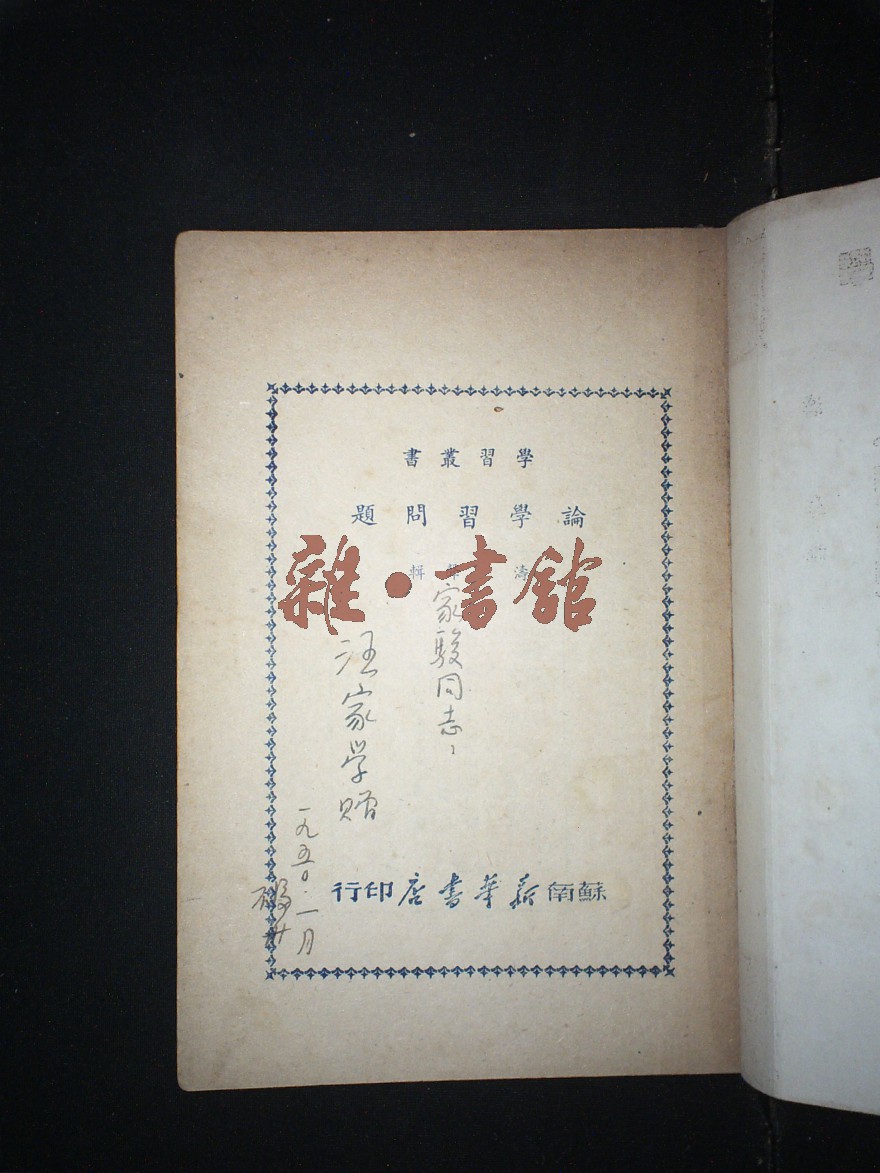 學習叢書
論學習問題
雜·書館
家駿同志:
汪家学贈
一九五〇.一月
蘇南新華書店印行